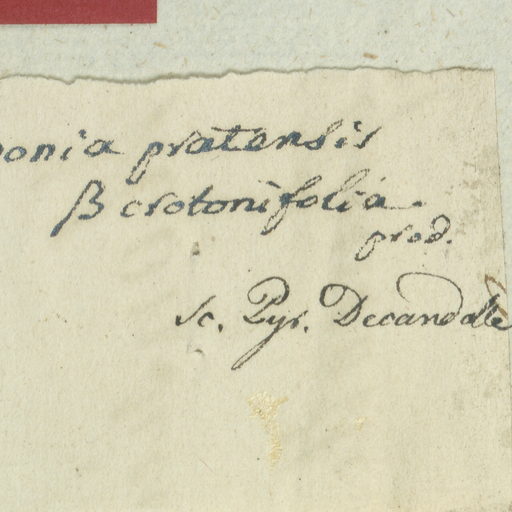 onia pratensis
β crotonifolia
prod.
Sc. Pyr. Decandolle